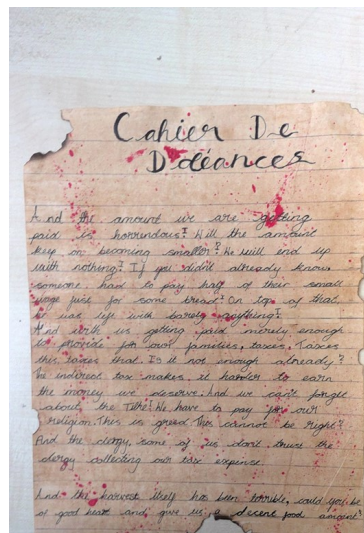 Cahier De
Doléances
And the amount we are getting
paid is horrendous! Will the amount
keep on becoming smaller? We will end up
with nothing! If you didn't already know
someone had to pay half of their small
wage just for some bread! On top of that,
he was left with barely anything!
And with us getting paid merely enough
to provide for our families, taxes. Taxes
this, taxes that. Is it not enough already?
The indirect tax makes it harder to earn
the money we deserve. And we can't forget
about the Tithe! We have to pay for our
religion. This is greed. This cannot be right?
And the clergy, some of us don't trust the
clergy collecting our tax expense.
And the harvest itself has been terrible, could you be
of good heart and give us a decent food amount